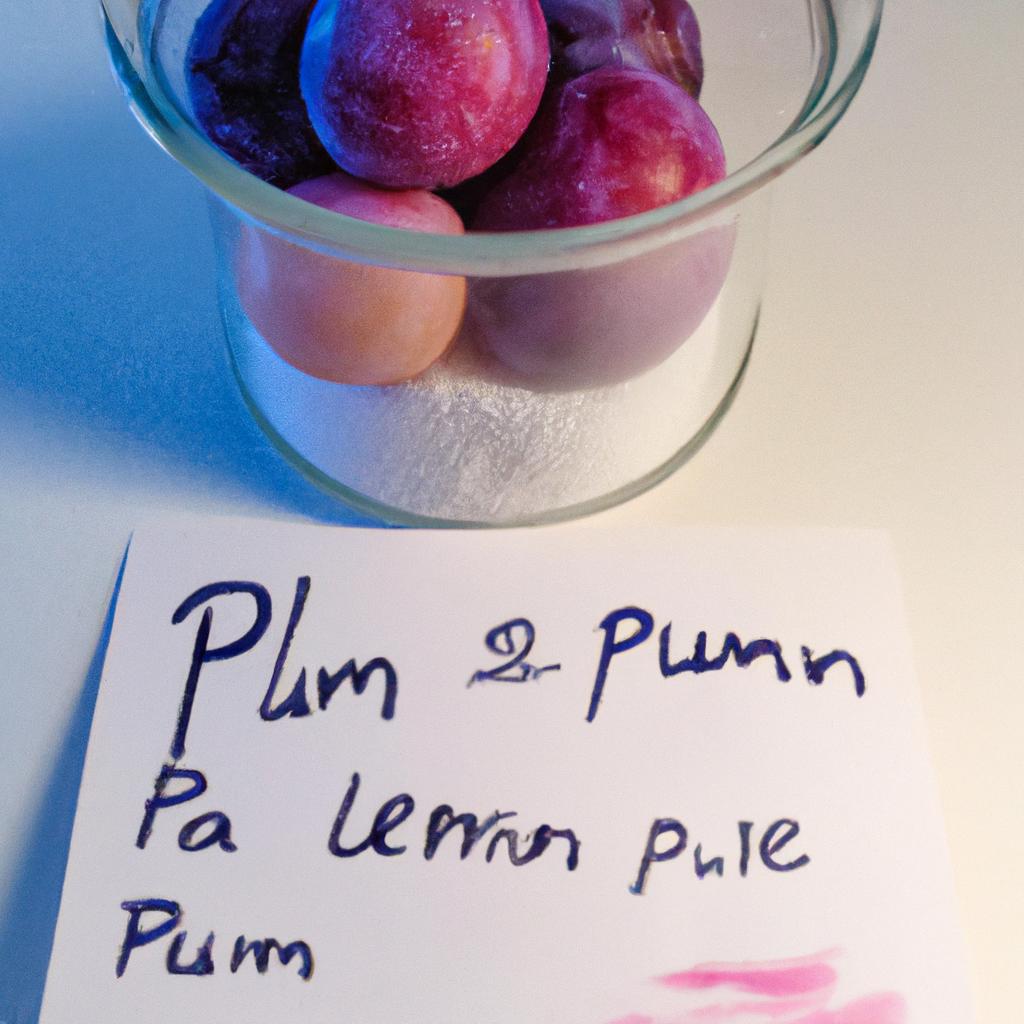 Plum 2 Pumn
Pa Lemon pule
Pumm